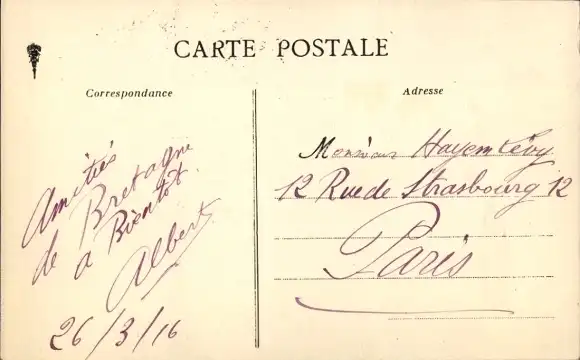 CARTE POSTALE
Correspondance
Amitiés
de Bretagne
a Bientot.
Albert
26/3/16
Adresse
Monsieur Hayem Lévy
12 Rue de Strasbourg 12
Paris